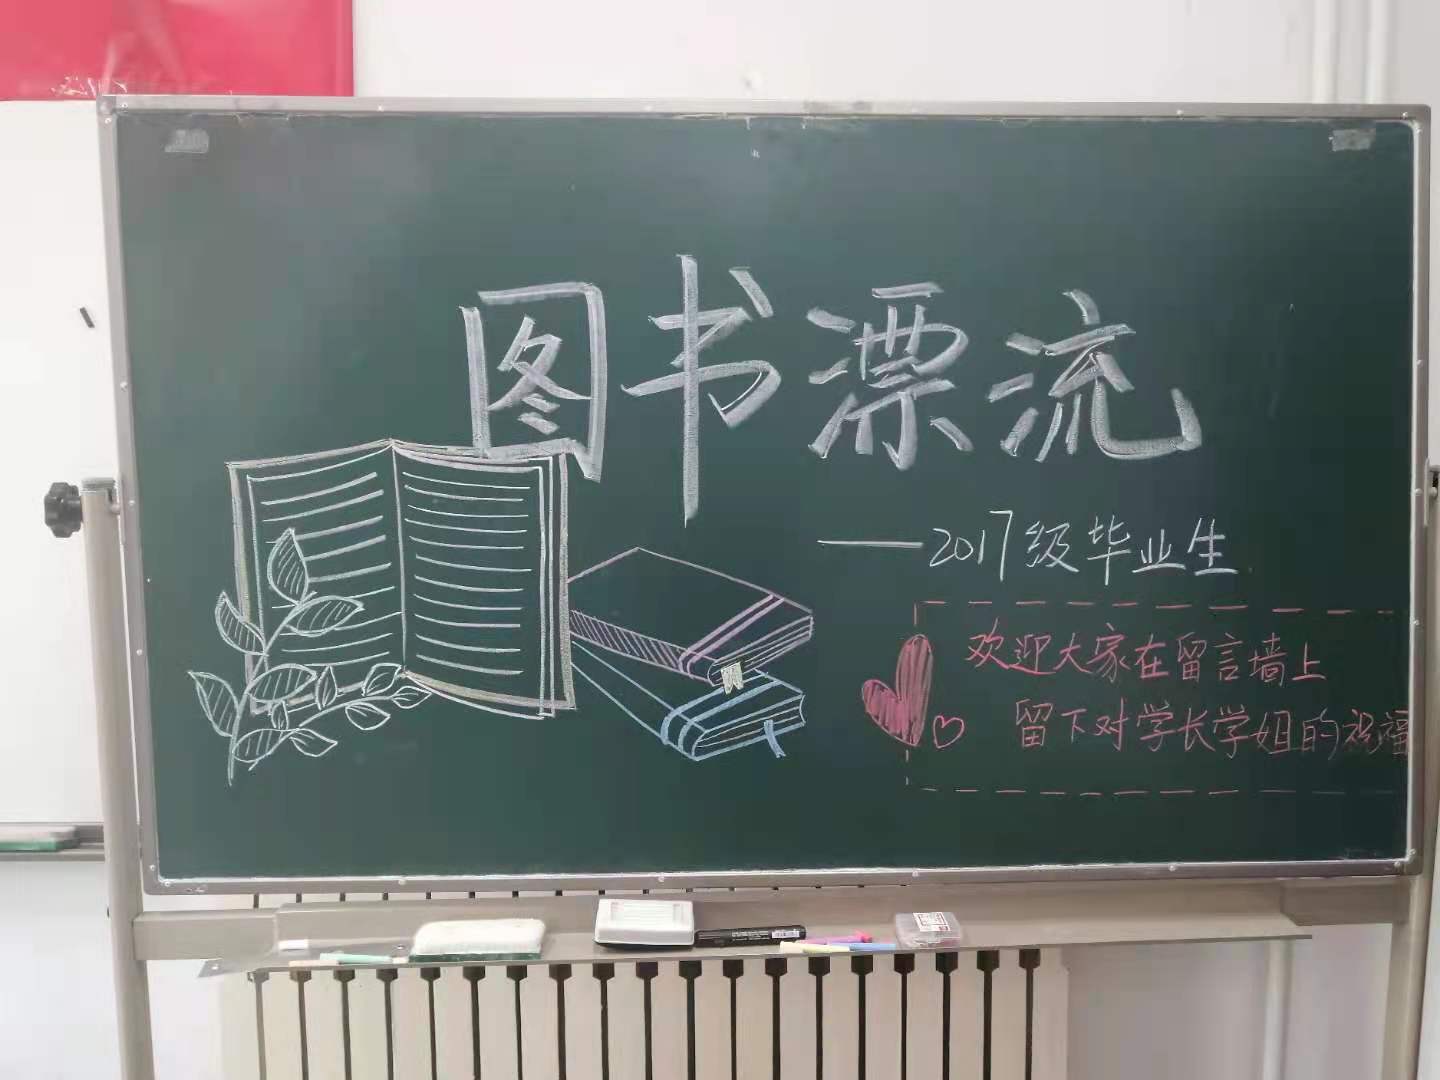 图书漂流
——2017级毕业生
欢迎大家在留言墙上
留下对学长学姐的祝福